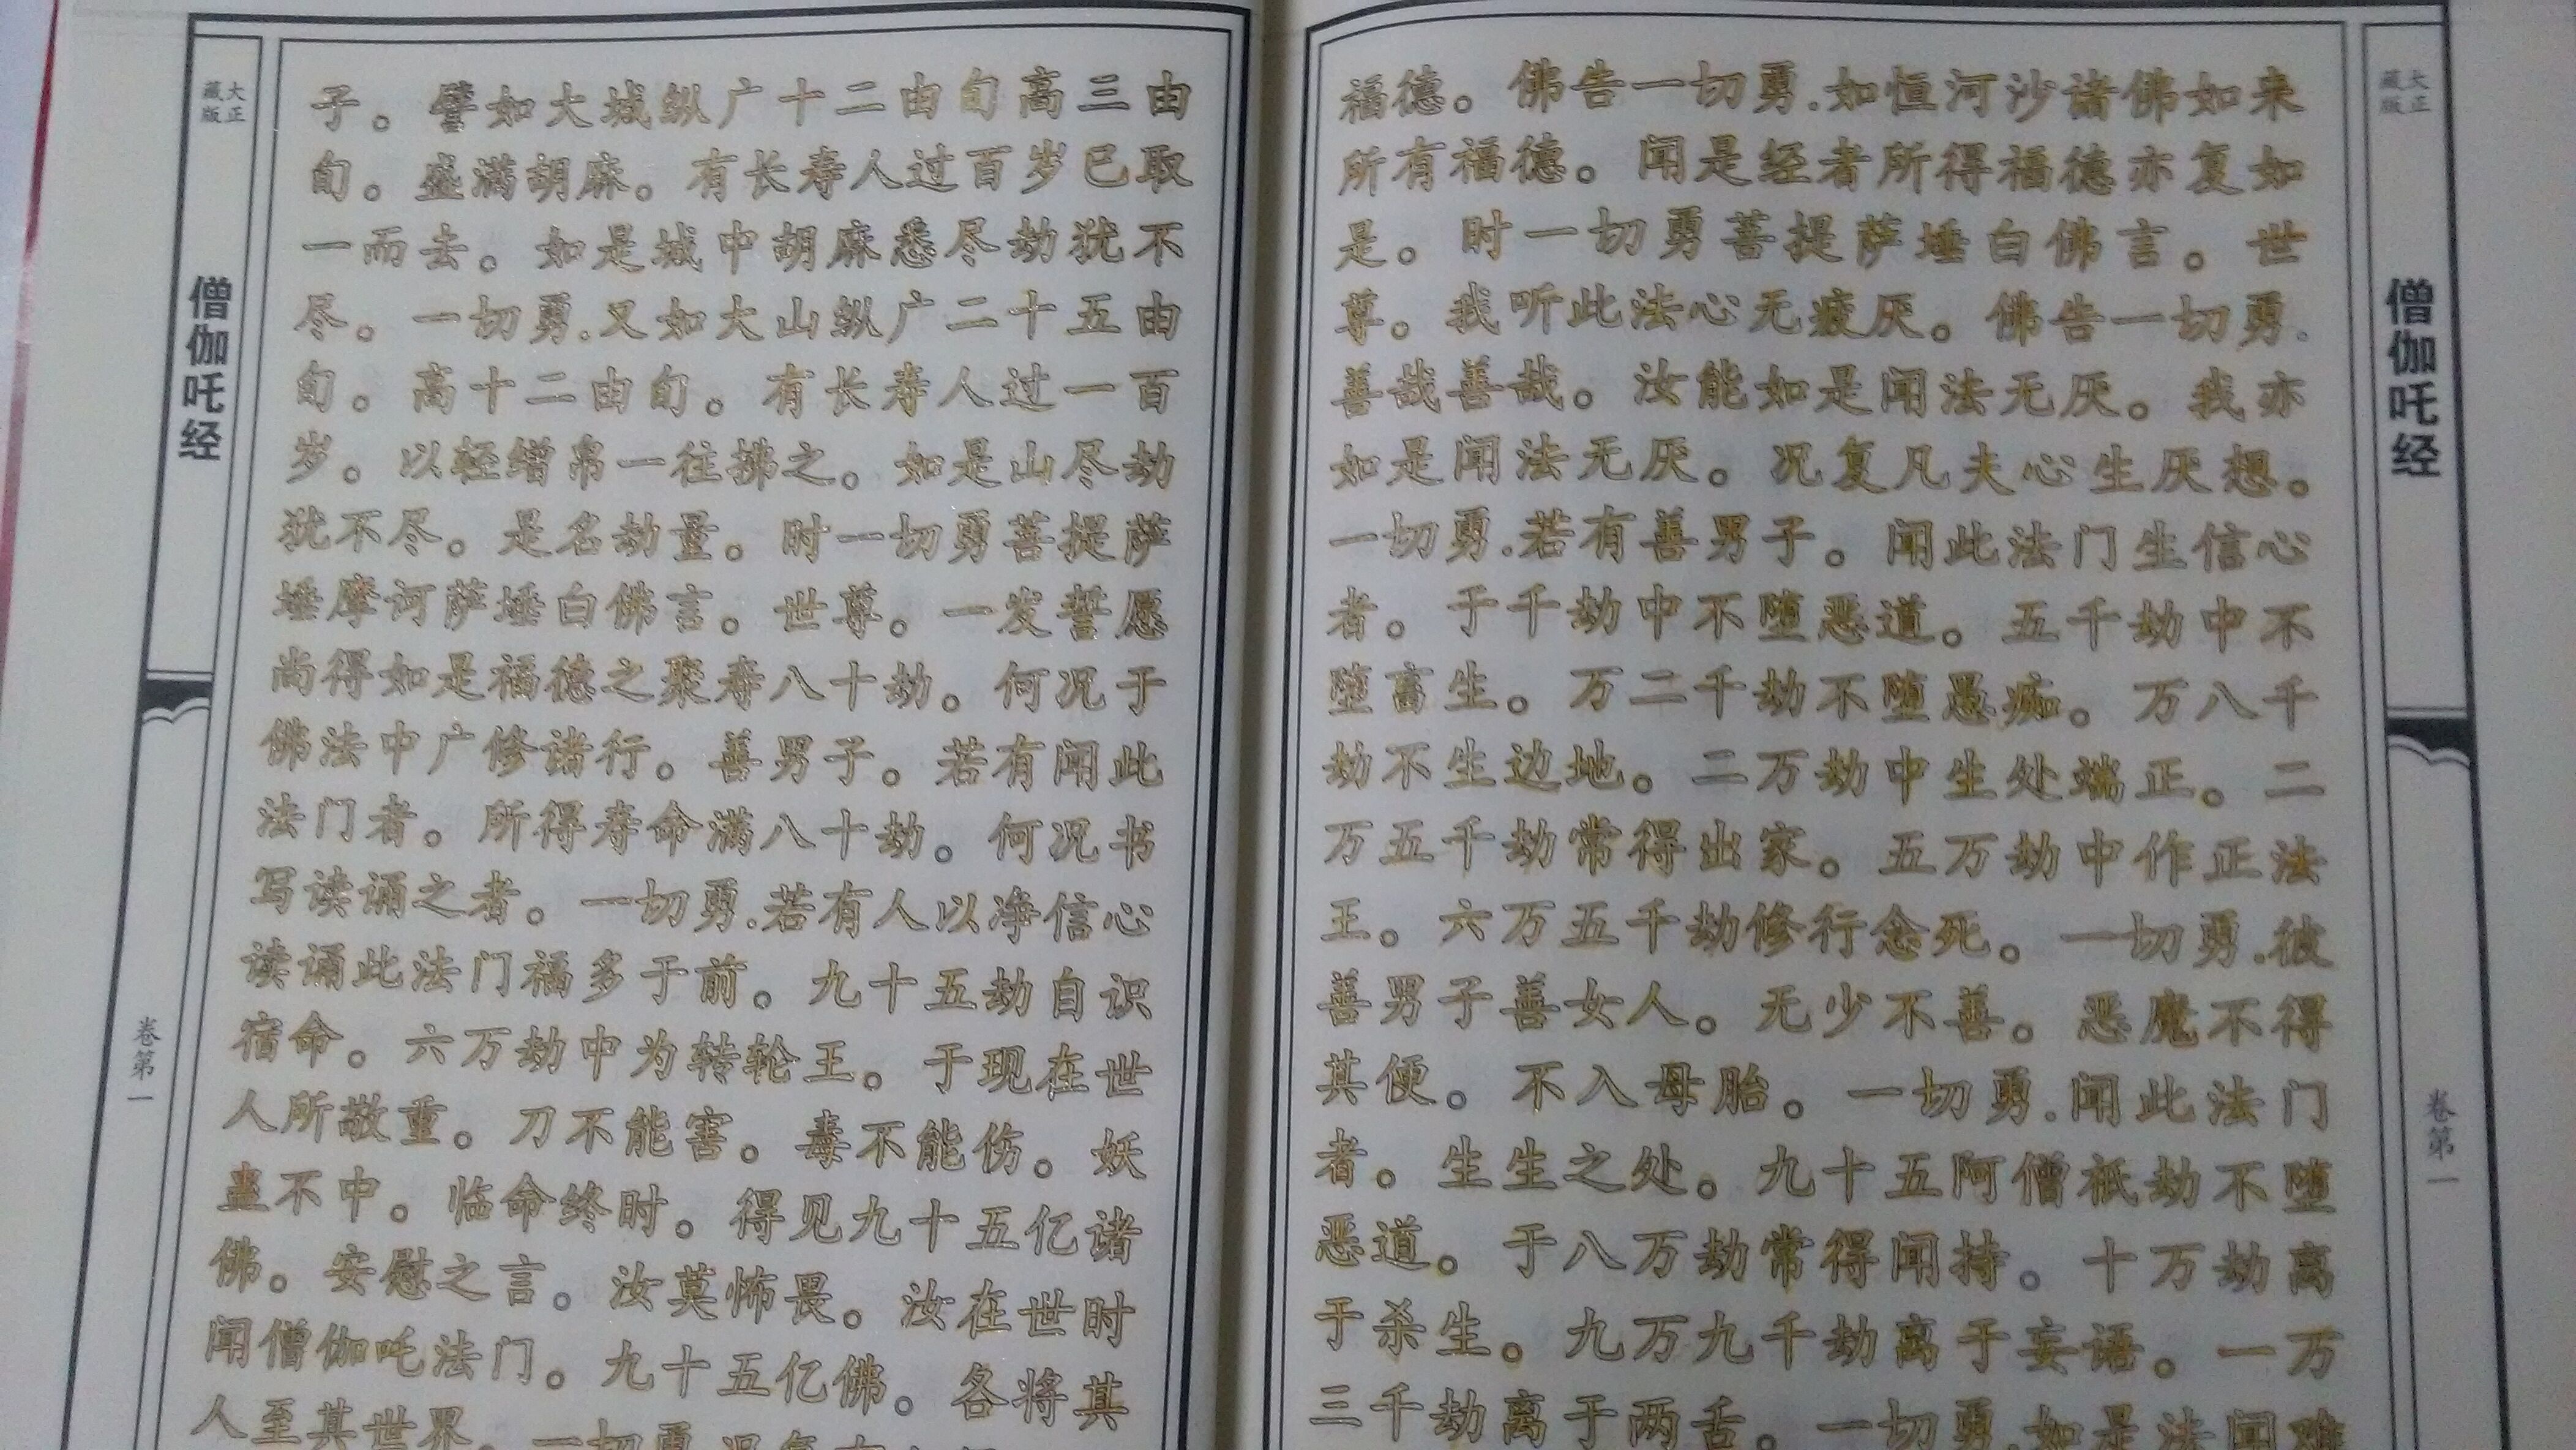 大正
藏版
僧伽吒经
卷第一
子。譬如大城纵广十二由旬高三由
旬。盛满胡麻。有长寿人过百岁已取
一而去。如是城中胡麻悉尽劫犹不
尽。一切勇.又如大山纵广二十五由
旬。高十二由旬。有长寿人过一百
岁。以轻缯帛一往拂之。如是山尽劫
犹不尽。是名劫量。时一切勇菩提萨
埵摩诃萨埵白佛言。世尊。一发誓愿
尚得如是福德之聚寿八十劫。何况于
佛法中广修诸行。善男子。若有闻此
法门者。所得寿命满八十劫。何况书
写读诵之者。一切勇.若有人以净信心
读诵此法门福多于前。九十五劫自识
宿命。六万劫中为转轮王。于现在世
人所敬重。刀不能害。毒不能伤。妖
蛊不中。临命终时。得见九十五亿诸
佛。安慰之言。汝莫怖畏。汝在世时
闻僧伽吒法门。九十五亿佛。各将其
人至其世界。一切勇
福德。佛告一切勇.如恒河沙诸佛如来
所有福德。闻是经者所得福德亦复如
是。时一切勇菩提萨埵白佛言。世
尊。我听此法心无疲厌。佛告一切勇.
善哉善哉。汝能如是闻法无厌。我亦
如是闻法无厌。况复凡夫心生厌想。
一切勇.若有善男子。闻此法门生信心
者。于千劫中不堕恶道。五千劫中不
堕畜生。万二千劫不堕愚痴。万八千
劫不生边地。二万劫中生处端正。二
万五千劫常得出家。五万劫中作正法
王。六万五千劫修行念死。一切勇.彼
善男子善女人。无少不善。恶魔不得
其便。不入母胎。一切勇.闻此法门
者。生生之处。九十五阿僧祇劫不堕
恶道。于八万劫常得闻持。十万劫离
于杀生。九万九千劫离于妄语。一万
三千劫离于两舌。一切勇.如是法闻难
大正
藏版
僧伽吒经
卷第一